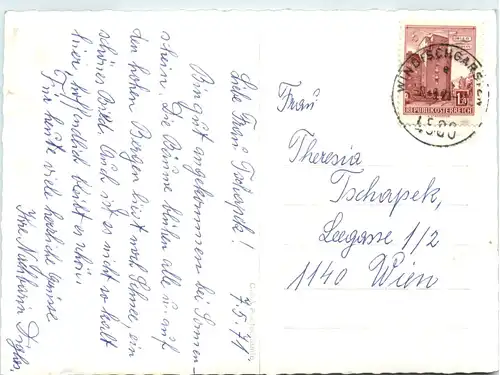 7.5.71
Liebe Frau Tschapek!
Bin gut angekommen bei Sonnen-
schein. Die Bäume blühen alle u. auf
den hohen Bergen liegt noch Schnee, ein
schönes Bild. Auch ist es nicht so kalt
hier, hoffendlich bleibt es schön.
Für heute viele herzliche Grüsse
Ihre Nachbarin
Frau
Theresia
Tschapek,
Leegasse 1/2
1140 Wien
WINDISCHGARSTEN
REPUBLIK ÖSTERREICH